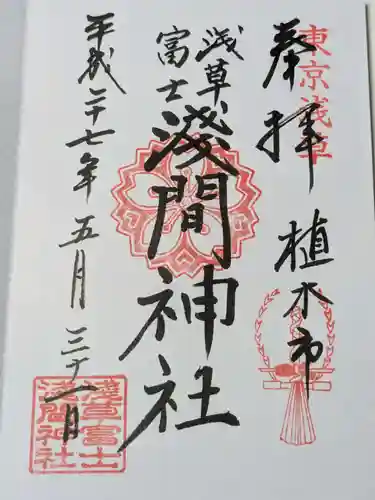 東京浅草
奉拝 植木市
浅草
富士
淺間神社
平成二十七年 五月 三十一日
淺草富士
淺間神社